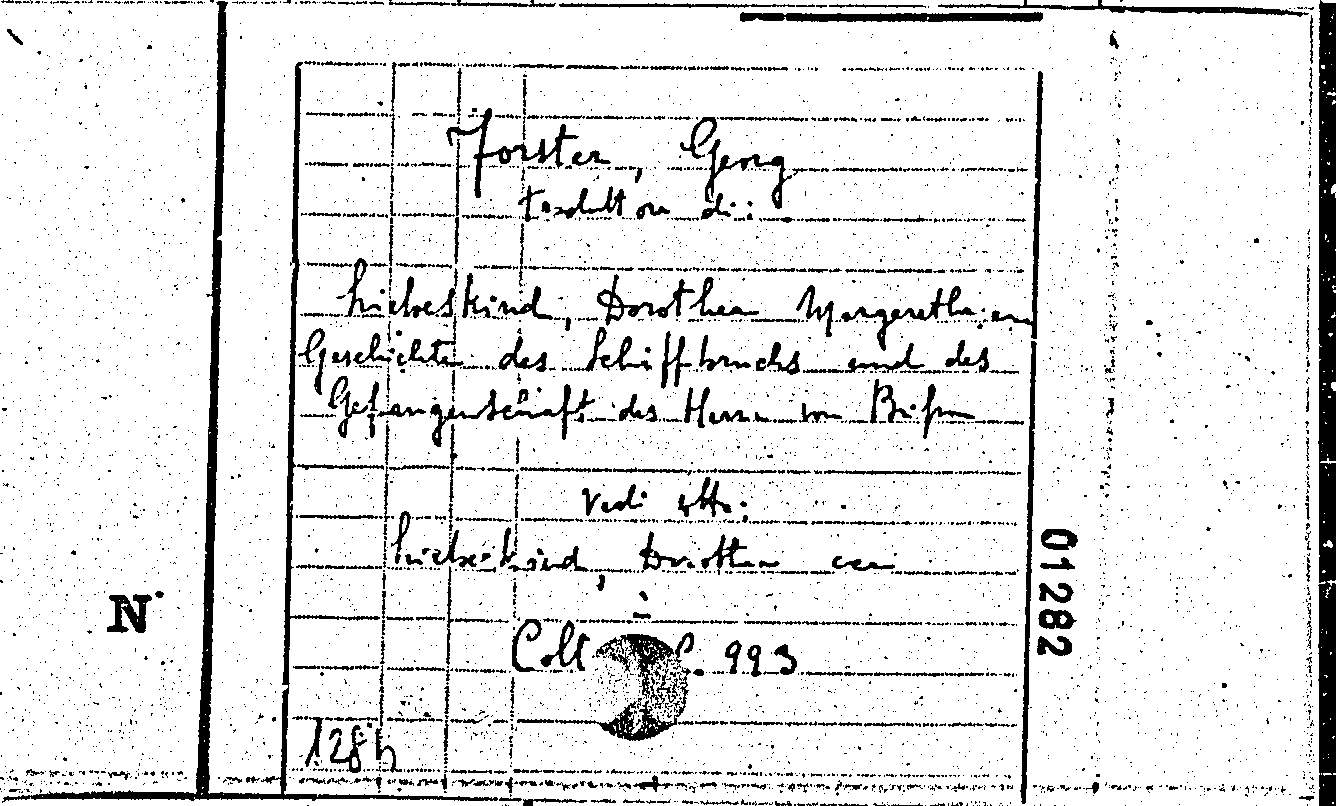 Forster, Georg
traduttore di:
Liebeskind, Dorothea Margaretha,
Geschichte des Schiffbruchs und des
Gefangenschaft des Herrn von Brisson
Vedi sotto:
Liebeskind, Dorothea
Coll 993
N°
01282